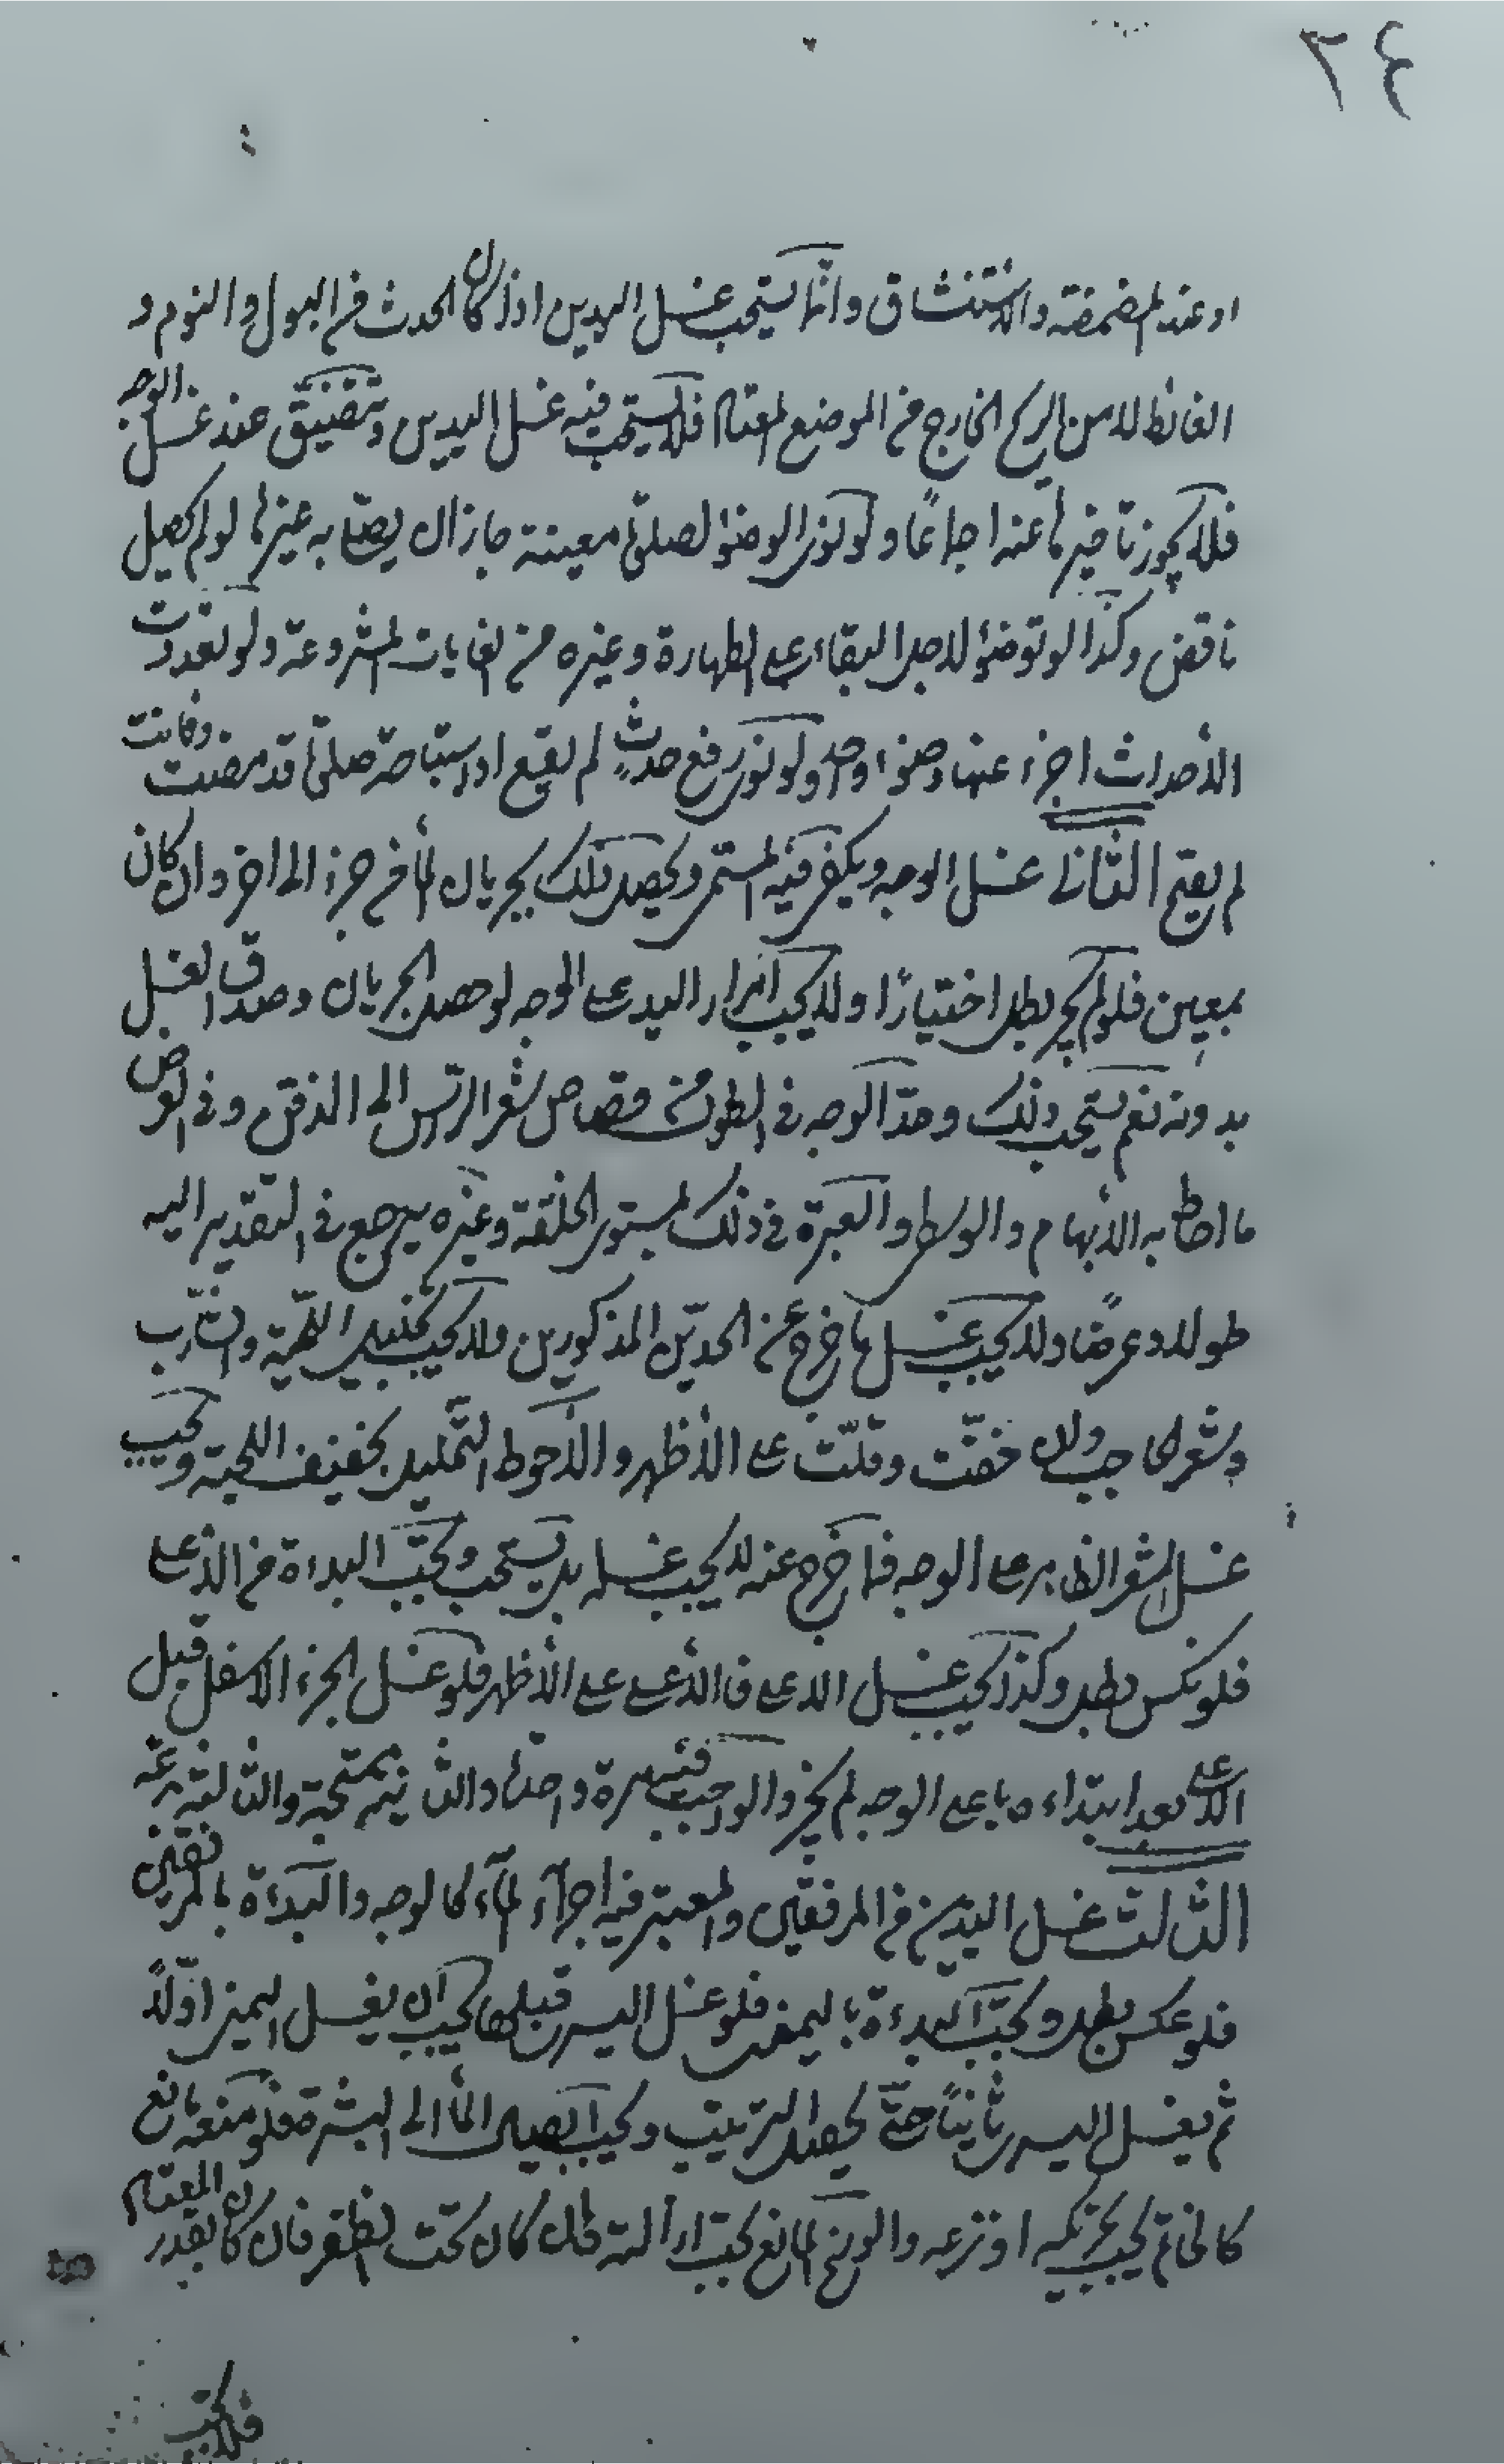 ٣٤
او عند المضمضة والاستنشاق وانّما يستحب غسل اليدين اذا كان الحدث من البول والنوم و
الغائط لا من الريح الخارج من الموضع المعتاد فلا يستحب فيه غسل اليدين وتتضيّق عند غسل الوجه
فلا يجوز تاخيرها عنه اجماعًا ولو نوى الوضوء لصلوة معينة جاز ان يصلّي به غيرها لو لم يحصل
ناقض وكذا لو توضؤ لاجل البقاء على الطهارة وغيره من الغايات المشروعة ولو تعددت
الأحداث اجزء عنها وضوء واحد ولو نوى رفع حدثٍ لم يقع او استباحة صلوة قد مضت وفاتت
لم يقع الثاني غسل الوجه ويكفي فيه المسمّى ويحصل ذلك بجريان المأ من جزء الى اخر وان كان
بمعين فلو لم يجر بطل اختيارًا ولا يجب امرار اليد على الوجه لو حصل الجريان وصدق الغسل
بدونه نعم يستحب ذلك وحدّ الوجه في الطول من قصاص شعر الرأس الى الذقن وفي العرض
ما احاط به الأبهام والوسطى والعبرة في ذلك لمستوى الخلقة وغيره يرجع في التقدير اليه
طولا وعرضًا ولا يجب غسل ما خرج عن الحدّين المذكورين ولا يجب تخليل اللحية والشارب
وشعر الحاجب وان خفّت وقلّت على الأظهر والأحوط التخليل بخفيف اللحية ويجب
غسل الشعر الظاهر على الوجه فما خرج عنه لا يجب غسله بل يستحب ويجب البداءة من الأعلى
فلو نكس بطل وكذا يجب غسل الاعلى فالأعلى على الأظهر فلو غسل الجزء الاسفل قبل
الأعلى بعد ابتداءه باعلى الوجه لم يجز والواجب فيه مرة واحدة والثانية مستحبة والثالثة بدعة
الثالث غسل اليدين من المرفقين والمعتبر فيه اجرآء المآء كالوجه والبدءة بالمرفقين
فلو عكس بطل ويجب البدءة باليمنى فلو غسل اليسرى قبلها يجب ان يغسل اليمنى اوّلاً
ثم يغسل اليسرى ثانيًا حتّى يحصل الترتيب ويجب ايصال المأ الى البشرة فلو منعه مانع
كالخاتم يجب تحريكه او نزعه والوسخ المانع يجب ازالته فان كان تحت الظفر فان كان بقدر المعتاد
فلا يجب